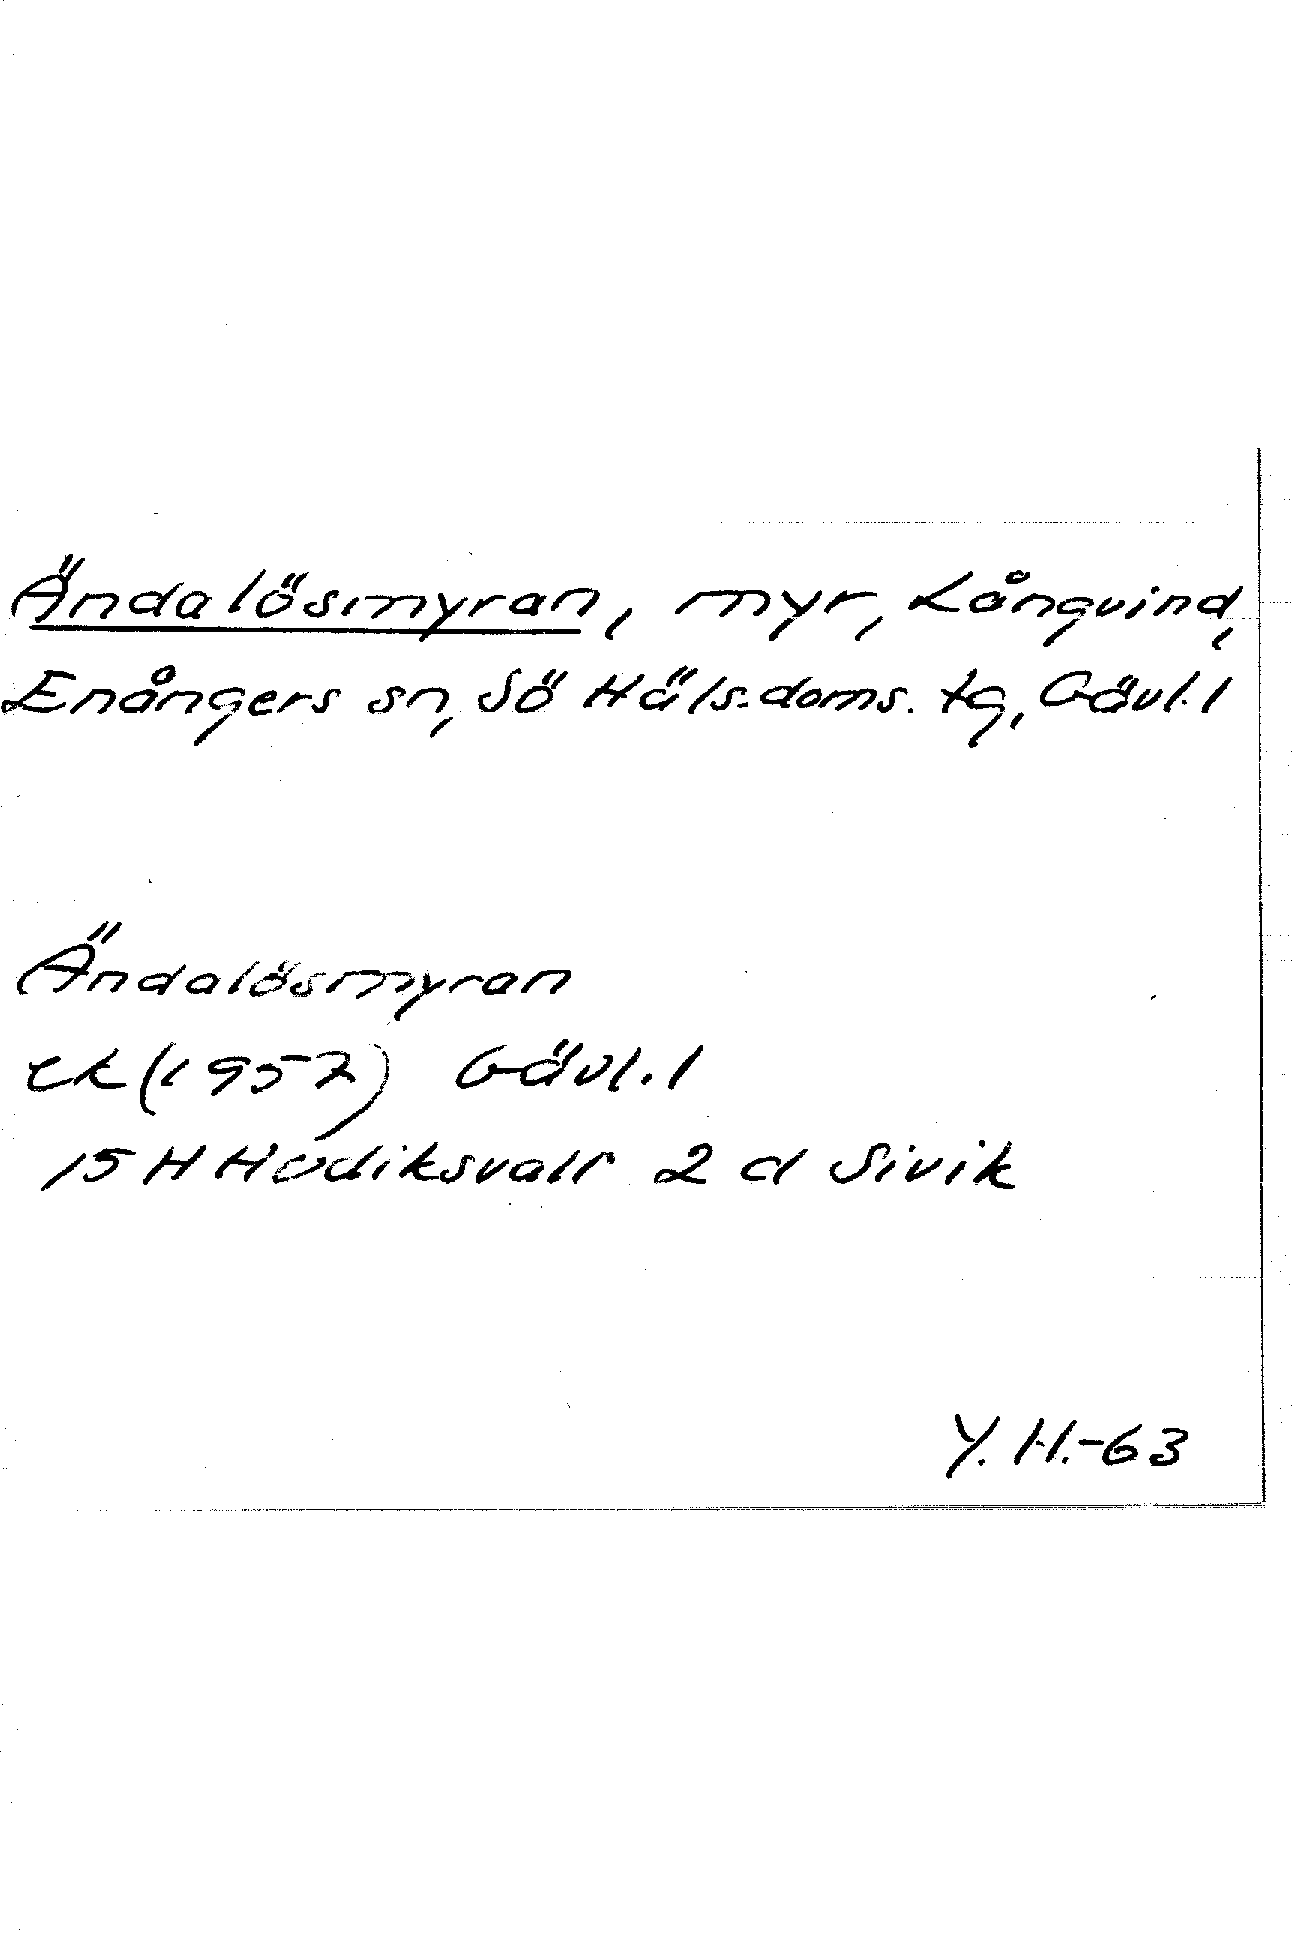 Ändalösmyran, myr, Långvind,
Enångers sn, Sö Häls. doms. tg, Gävl. l
Ändalösmyran
ek (1957) Gävl. l
15 H Hudiksvall 2 d Sivik
Y. H.-63